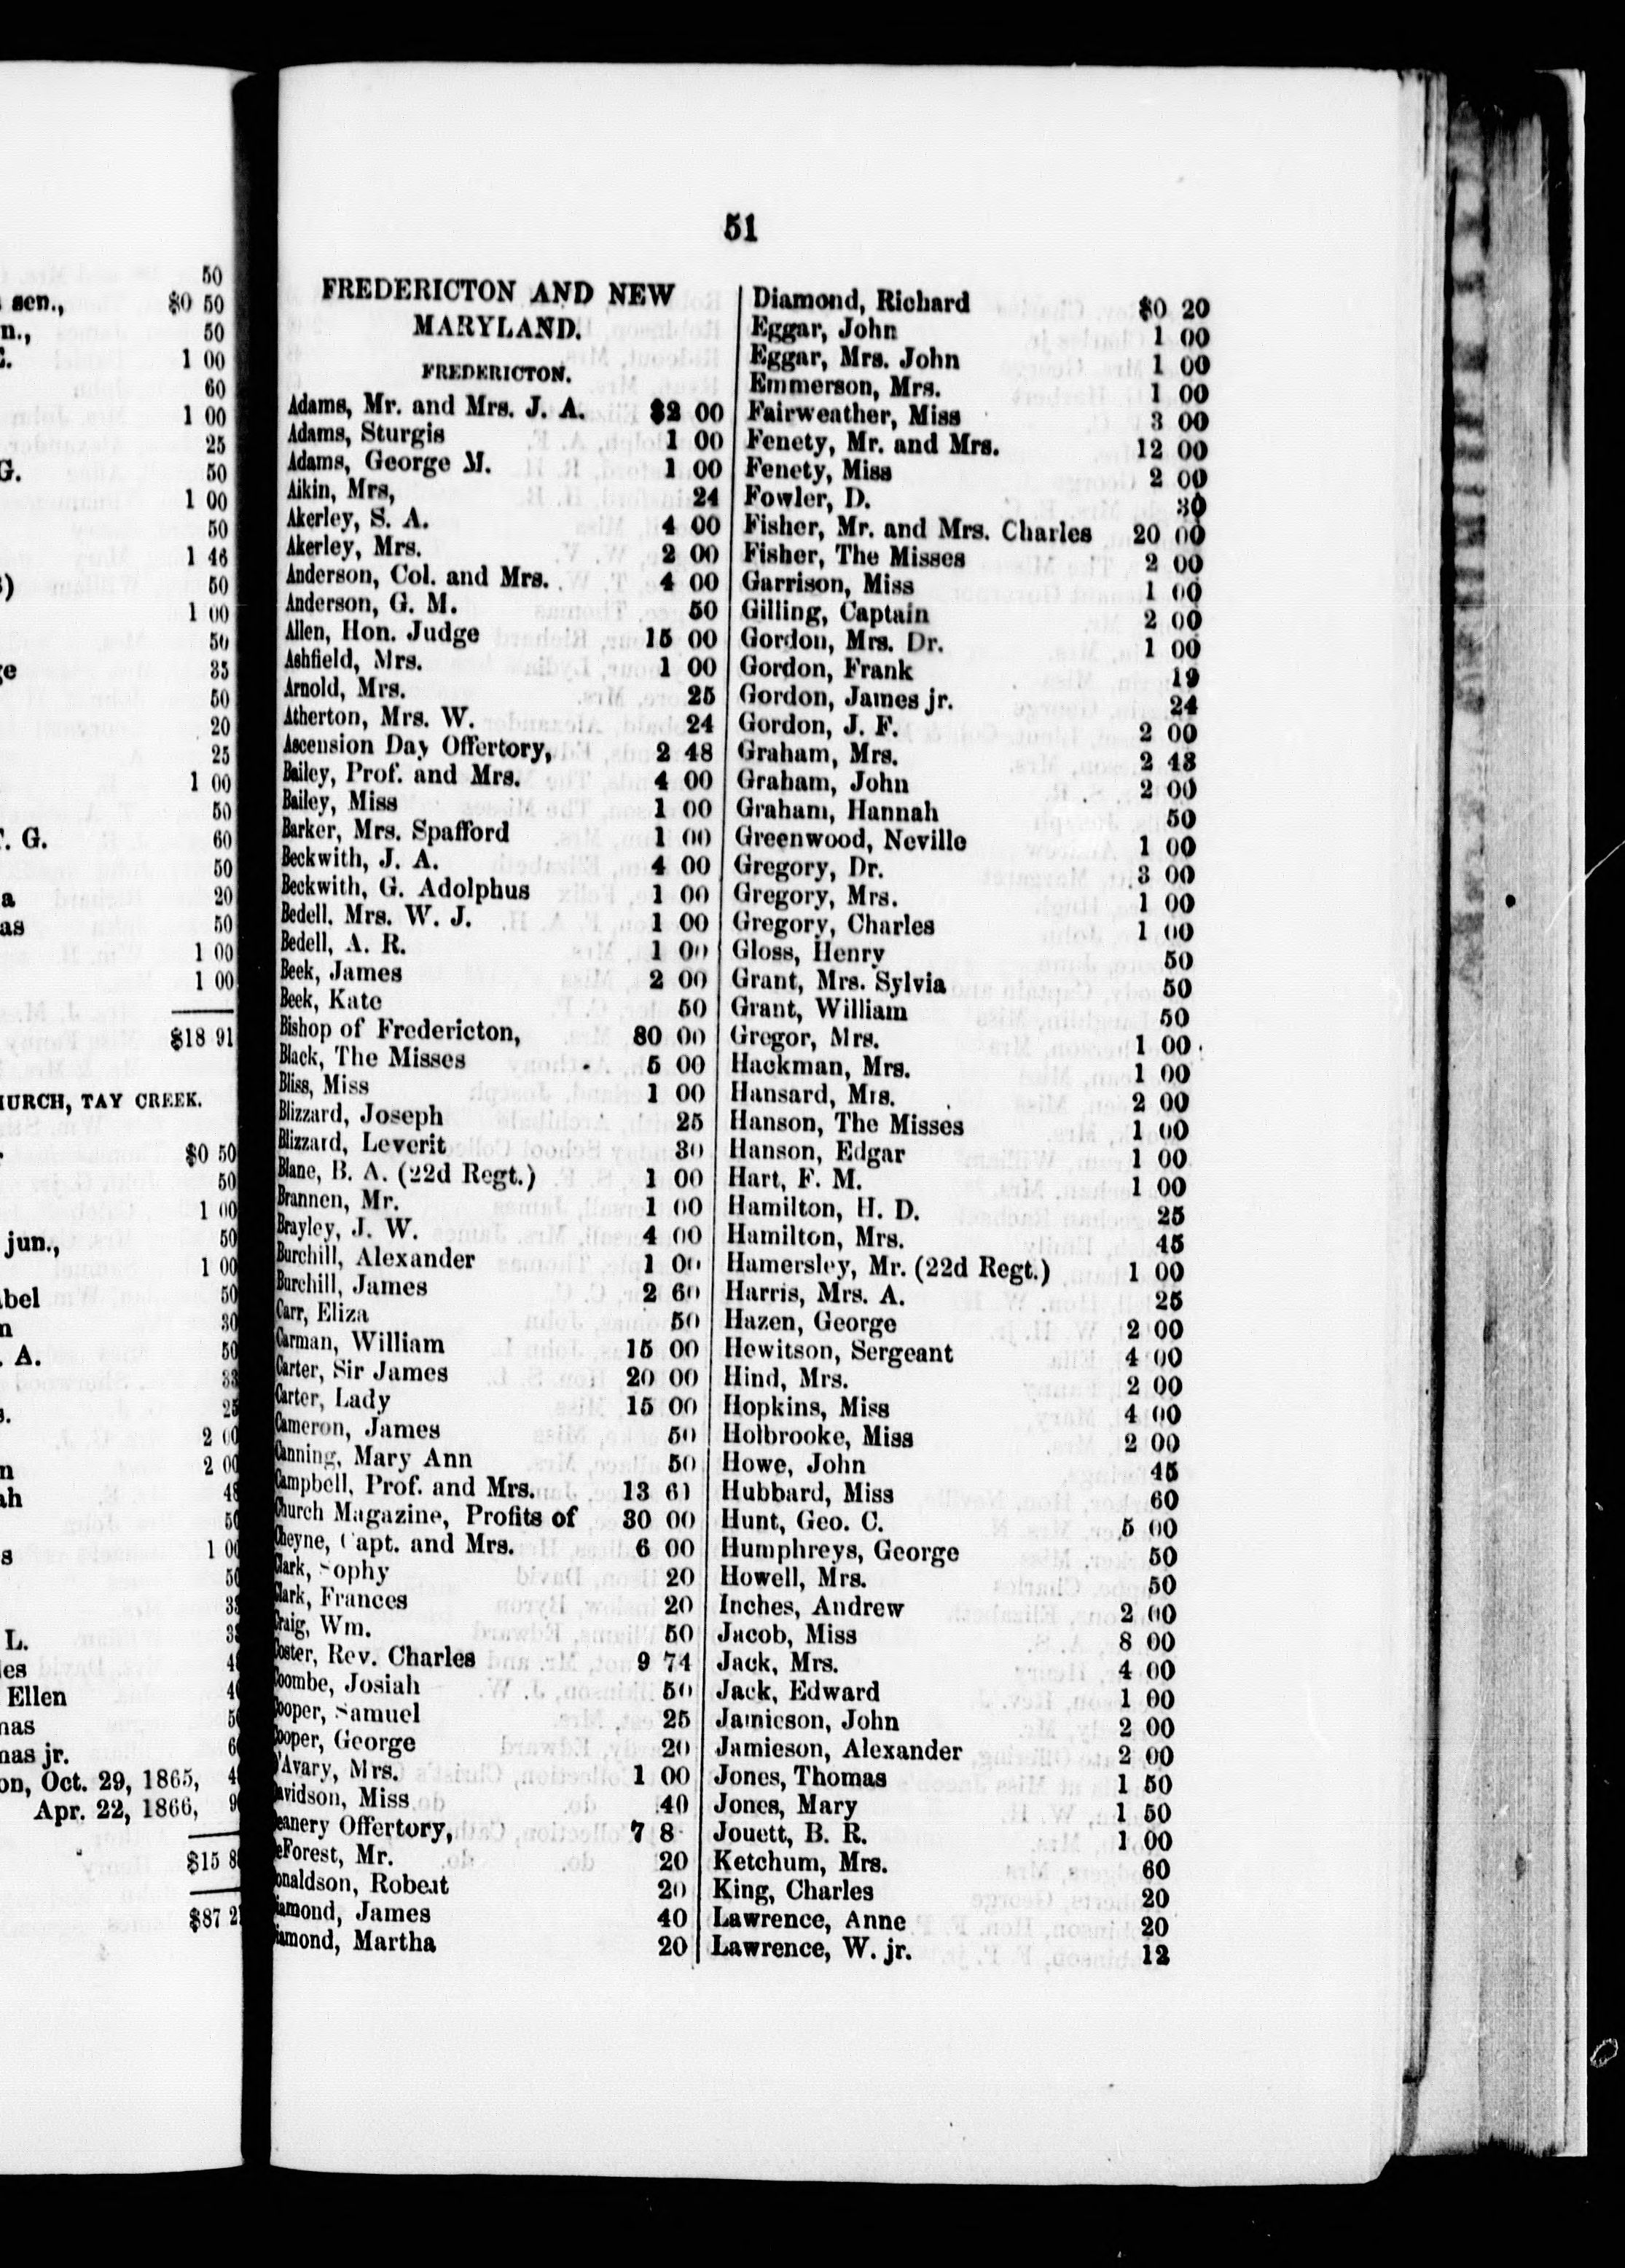 50
sen., $0 50
n., 50
1 00
60
1 00
25
G. 50
1 00
50
1 46
50
1 00
50
35
50
20
25
1 00
50
. G. 60
50
a 20
as 50
1 00
1 00
$18 91
HURCH, TAY CREEK.
$0 50
50
1 00
jun., 50
1 00
bel 50
n 30
. A. 50
33
25
2 00
n 2 00
ah 48
50
s 1 00
50
33
L.
les
Ellen
mas
mas jr.
on, Oct. 29, 1865,
Apr. 22, 1866,
$15 8
$87 2
51
FREDERICTON AND NEW
MARYLAND.
FREDERICTON.
Adams, Mr. and Mrs. J. A. $2 00
Adams, Sturgis 1 00
Adams, George M. 1 00
Aikin, Mrs, 24
Akerley, S. A. 4 00
Akerley, Mrs. 2 00
Anderson, Col. and Mrs. 4 00
Anderson, G. M. 50
Allen, Hon. Judge 15 00
Ashfield, Mrs. 1 00
Arnold, Mrs. 25
Atherton, Mrs. W. 24
Ascension Day Offertory, 2 48
Bailey, Prof. and Mrs. 4 00
Bailey, Miss 1 00
Barker, Mrs. Spafford 1 00
Beckwith, J. A. 4 00
Beckwith, G. Adolphus 1 00
Bedell. Mrs. W. J. 1 00
Bedell, A. R. 1 00
Beek, James 2 00
Beek, Kate 50
Bishop of Fredericton, 80 00
Black, The Misses 5 00
Bliss, Miss 1 00
Blizzard, Joseph 25
Blizzard, Leverit 30
Blane, B. A. (22d Regt.) 1 00
Brannen, Mr. 1 00
Brayley, J. W. 4 00
Burchill, Alexander 1 00
Burchill, James 2 60
Carr, Eliza 50
Carman, William 15 00
Carter, Sir James 20 00
Carter, Lady 15 00
Cameron, James 50
Canning, Mary Ann 50
Campbell, Prof. and Mrs. 13 61
Church Magazine, Profits of 30 00
Cheyne, Capt. and Mrs. 6 00
Clark, Sophy 20
Clark, Frances 20
Craig, Wm. 50
Coster, Rev. Charles 9 74
Coombe, Josiah 50
Cooper, Samuel 25
Cooper, George 20
D'Avary, Mrs. 1 00
Davidson, Miss 40
Deanery Offertory, 7 8
DeForest, Mr. 20
Donaldson, Robert 20
Diamond, James 40
Diamond, Martha 20
Diamond, Richard $0 20
Eggar, John 1 00
Eggar, Mrs. John 1 00
Emmerson, Mrs. 1 00
Fairweather, Miss 3 00
Fenety, Mr. and Mrs. 12 00
Fenety, Miss 2 00
Fowler, D. 30
Fisher, Mr. and Mrs. Charles 20 00
Fisher, The Misses 2 00
Garrison, Miss 1 00
Gilling, Captain 2 00
Gordon, Mrs. Dr. 1 00
Gordon, Frank 19
Gordon, James jr. 24
Gordon, J. F. 2 00
Graham, Mrs. 2 43
Graham, John 2 00
Graham, Hannah 50
Greenwood, Neville 1 00
Gregory, Dr. 3 00
Gregory, Mrs. 1 00
Gregory, Charles 1 00
Gloss, Henry 50
Grant, Mrs. Sylvia 50
Grant, William 50
Gregor, Mrs. 1 00
Hackman, Mrs. 1 00
Hansard, Mrs. 2 00
Hanson, The Misses 1 00
Hanson, Edgar 1 00
Hart, F. M. 1 00
Hamilton, H. D. 25
Hamilton, Mrs. 45
Hamersley, Mr. (22d Regt.) 1 00
Harris, Mrs. A. 25
Hazen, George 2 00
Hewitson, Sergeant 4 00
Hind, Mrs. 2 00
Hopkins, Miss 4 00
Holbrooke, Miss 2 00
Howe, John 45
Hubbard, Miss 60
Hunt, Geo. C. 5 00
Humphreys, George 50
Howell, Mrs. 50
Inches, Andrew 2 00
Jacob, Miss 8 00
Jack, Mrs. 4 00
Jack, Edward 1 00
Jamieson, John 2 00
Jamieson, Alexander 2 00
Jones, Thomas 1 50
Jones, Mary 1 50
Jouett, B. R. 1 00
Ketchum, Mrs. 60
King, Charles 20
Lawrence, Anne 20
Lawrence, W. jr. 12